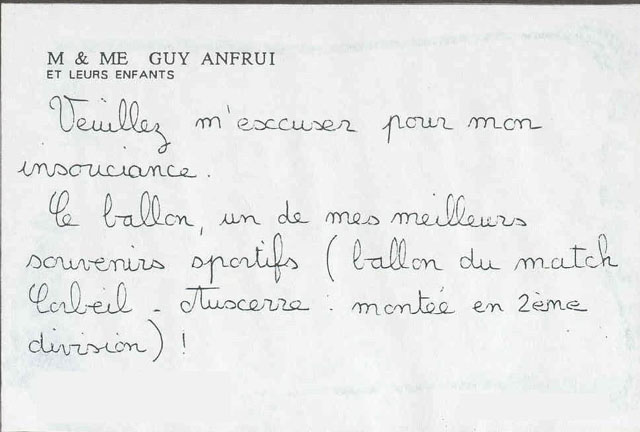 M & ME GUY ANFRUI
ET LEURS ENFANTS
Veuillez m'excuser pour mon
insouciance.
Ce ballon, un de mes meilleurs
souvenirs sportifs (ballon du match
Corbeil - Auxerre : montée en 2ème
division) !